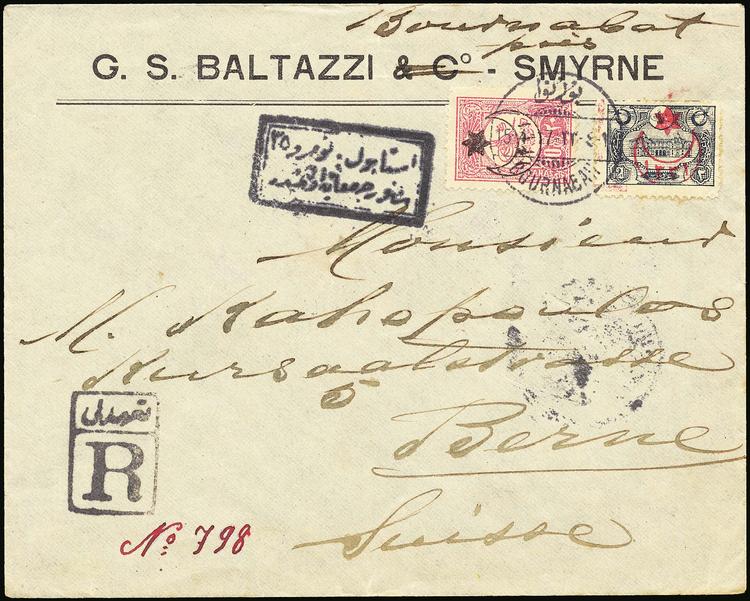 Bournabat
près
G. S. BALTAZZI & Co - SMYRNE
BOURNABAT
استانبول : نومرو ٢٥
Monsieur
M. Kahopoulos
Kursaalstrasse
5
Berne
Suisse
R
No 798